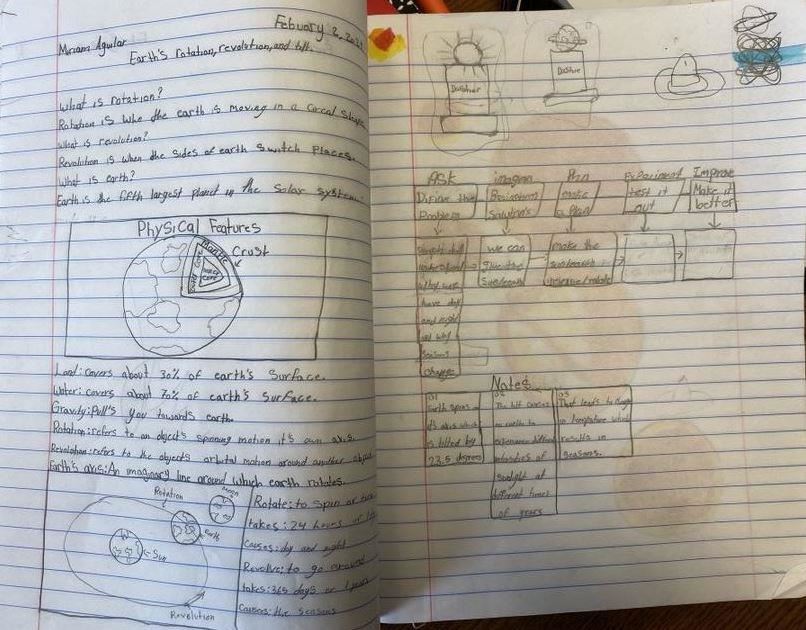 Febuary 2, 202
Miriam Aguilar
Earth's rotation, revolution, and tilt.
What is rotation?
Rotation is whe the earth is moving in a
What is revolution?
Revolution is when the sides of earth switch places.
What is earth?
Earth is the fifth largest planet in the solar system
Physical Features
Mantle
Crust
Land: covers about 30% of earth's surface.
Water: covers about 70% of earth's surface.
Gravity: Pull's you towards earth.
Rotation: refers to an object's spinning motion it's own axis.
Revolution: refers to the objects orbital motion around another object
Earth's axis: An imaginary line around which earth rotates.
Rotation
Moon
Earth
Sun
Revolution
Rotate: to spin or
takes: 24 hours or
Causes: day and night
Revolve: to go around
takes: 365 days or 1 year
Causes: the seasons
ASK
Plan
Experiment
Improve
the
Problem
Brainstorm
Solutions
make
a Plan
test it
out
Make it
better
we can
make the
have day
and night
and why
seasons
change
Notes
01
Earth spins
axis which
is tilted by
23.5 degrees
02
The tilt causes
earth to
experience different
intensities of
sunlight at
different times
of years
03
That leads to
in temperature which
results in
seasons.